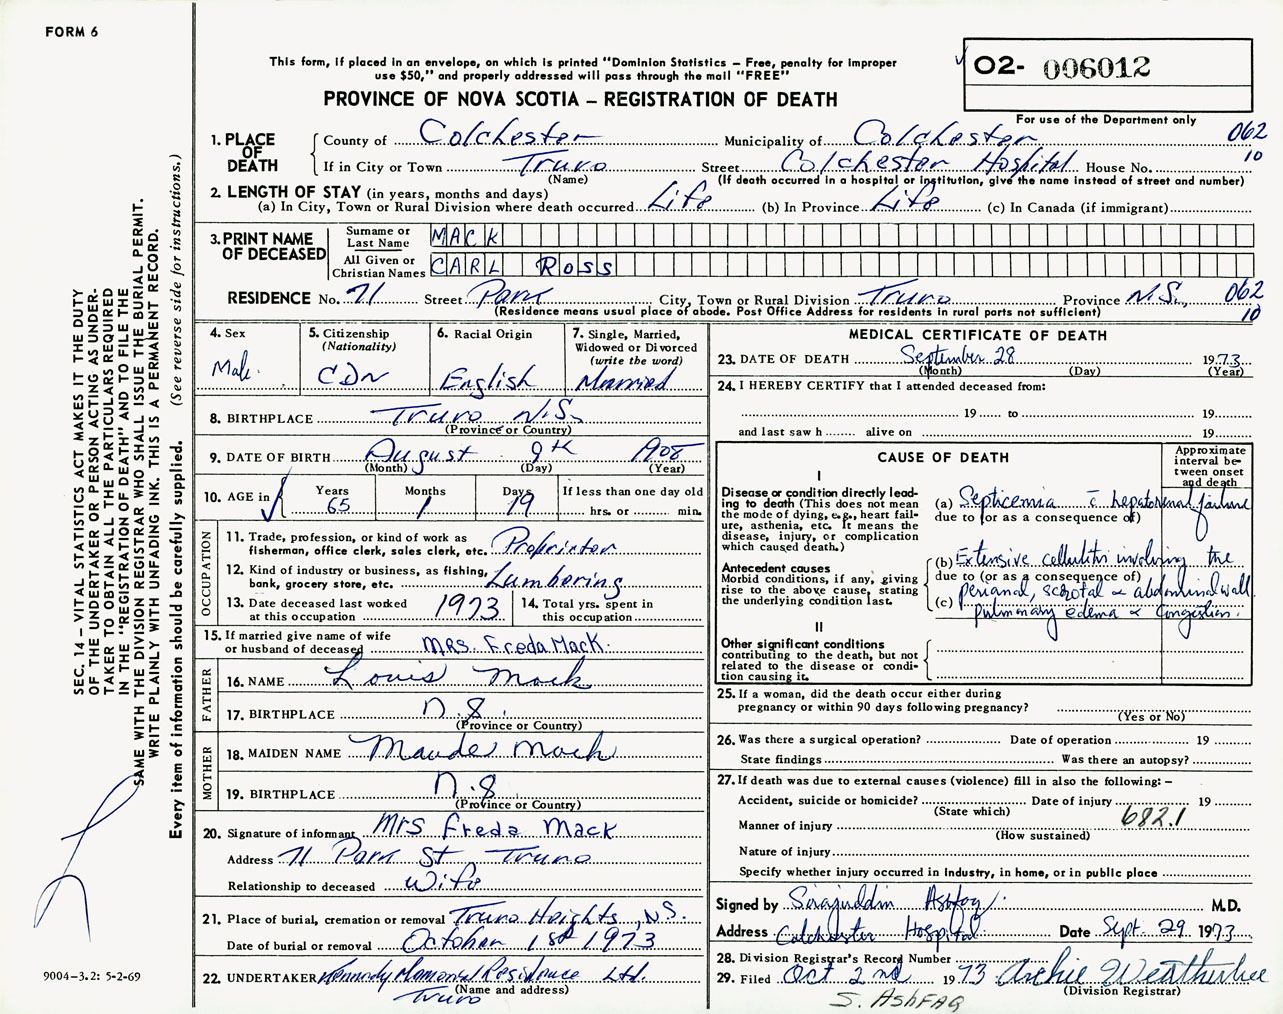 FORM 6
This form, if placed in an envelope, on which is printed "Dominion Statistics – Free, penalty for improper
use $50," and properly addressed will pass through the mail "FREE"
O2- 006012
PROVINCE OF NOVA SCOTIA – REGISTRATION OF DEATH
For use of the Department only
1. PLACE OF DEATH County of Colchester Municipality of Colchester 062
If in City or Town Truro Street Colchester Hospital House No. 10
(Name) (If death occurred in a hospital or institution, give the name instead of street and number)
2. LENGTH OF STAY (in years, months and days)
(a) In City, Town or Rural Division where death occurred Life (b) In Province Life (c) In Canada (if immigrant)
3. PRINT NAME OF DECEASED
Surname or Last Name MACK
All Given or Christian Names CARL ROSS
RESIDENCE No. 71 Street Park City, Town or Rural Division Truro Province N.S. 062
(Residence means usual place of abode. Post Office Address for residents in rural parts not sufficient) 10
4. Sex
Male
5. Citizenship
(Nationality)
CDN
6. Racial Origin
English
7. Single, Married,
Widowed or Divorced
(write the word)
Married
8. BIRTHPLACE Truro N.S.
(Province or Country)
9. DATE OF BIRTH August 9th 1908
(Month) (Day) (Year)
10. AGE in
Years
65
Months
1
Days
19
If less than one day old
hrs. or min.
OCCUPATION
11. Trade, profession, or kind of work as
fisherman, office clerk, sales clerk, etc. Proprietor
12. Kind of industry or business, as fishing,
bank, grocery store, etc. Lumbering
13. Date deceased last worked
at this occupation 1973
14. Total yrs. spent in
this occupation
15. If married give name of wife
or husband of deceased Mrs. Freda Mack
FATHER
16. NAME Louis Mack
17. BIRTHPLACE N.S.
(Province or Country)
MOTHER
18. MAIDEN NAME Maude Mack
19. BIRTHPLACE N.S
(Province or Country)
20. Signature of informant Mrs Freda Mack
Address 71 Park St Truro
Relationship to deceased Wife
21. Place of burial, cremation or removal Truro Heights, NS.
Date of burial or removal October 1st 1973
22. UNDERTAKER Kennedy Memorial Residence Ltd.
(Name and address)
Truro
MEDICAL CERTIFICATE OF DEATH
23. DATE OF DEATH September 28 1973
(Month) (Day) (Year)
24. I HEREBY CERTIFY that I attended deceased from:
19 to 19
and last saw h alive on 19
CAUSE OF DEATH
Approximate
interval be-
tween onset
and death
I
Disease or condition directly lead-
ing to death (This does not mean
the mode of dying, e.g., heart fail-
ure, asthenia, etc. It means the
disease, injury, or complication
which caused death.)
(a) Septicemia c̄ hepatorenal failure
due to (or as a consequence of)
Antecedent causes
Morbid conditions, if any, giving
rise to the above cause, stating
the underlying condition last.
(b) Extensive cellulitis involving the
due to (or as a consequence of)
perianal, scrotal & abdominal wall
(c)
pulmonary edema & congestion.
II
Other significant conditions
contributing to the death, but not
related to the disease or condi-
tion causing it.
25. If a woman, did the death occur either during
pregnancy or within 90 days following pregnancy?
(Yes or No)
26. Was there a surgical operation? Date of operation 19
State findings Was there an autopsy?
27. If death was due to external causes (violence) fill in also the following: –
Accident, suicide or homicide? Date of injury 19
(State which)
682.1
Manner of injury
(How sustained)
Nature of injury
Specify whether injury occurred in industry, in home, or in public place
Signed by Sirajuddin Ashfaq M.D.
Address Colchester Hospital Date Sept. 29 1973
28. Division Registrar's Record Number
29. Filed Oct 2nd 1973 Archie Weatherbee
(Division Registrar)
S. ASHFAQ
SEC. 14 – VITAL STATISTICS ACT MAKES IT THE DUTY
OF THE UNDERTAKER OR PERSON ACTING AS UNDER-
TAKER TO OBTAIN ALL THE PARTICULARS REQUIRED
IN THE "REGISTRATION OF DEATH" AND TO FILE THE
SAME WITH THE DIVISION REGISTRAR WHO SHALL ISSUE THE BURIAL PERMIT.
WRITE PLAINLY WITH UNFADING INK. THIS IS A PERMANENT RECORD.
Every item of information should be carefully supplied. (See reverse side for instructions.)
9004–3.2: 5-2-69